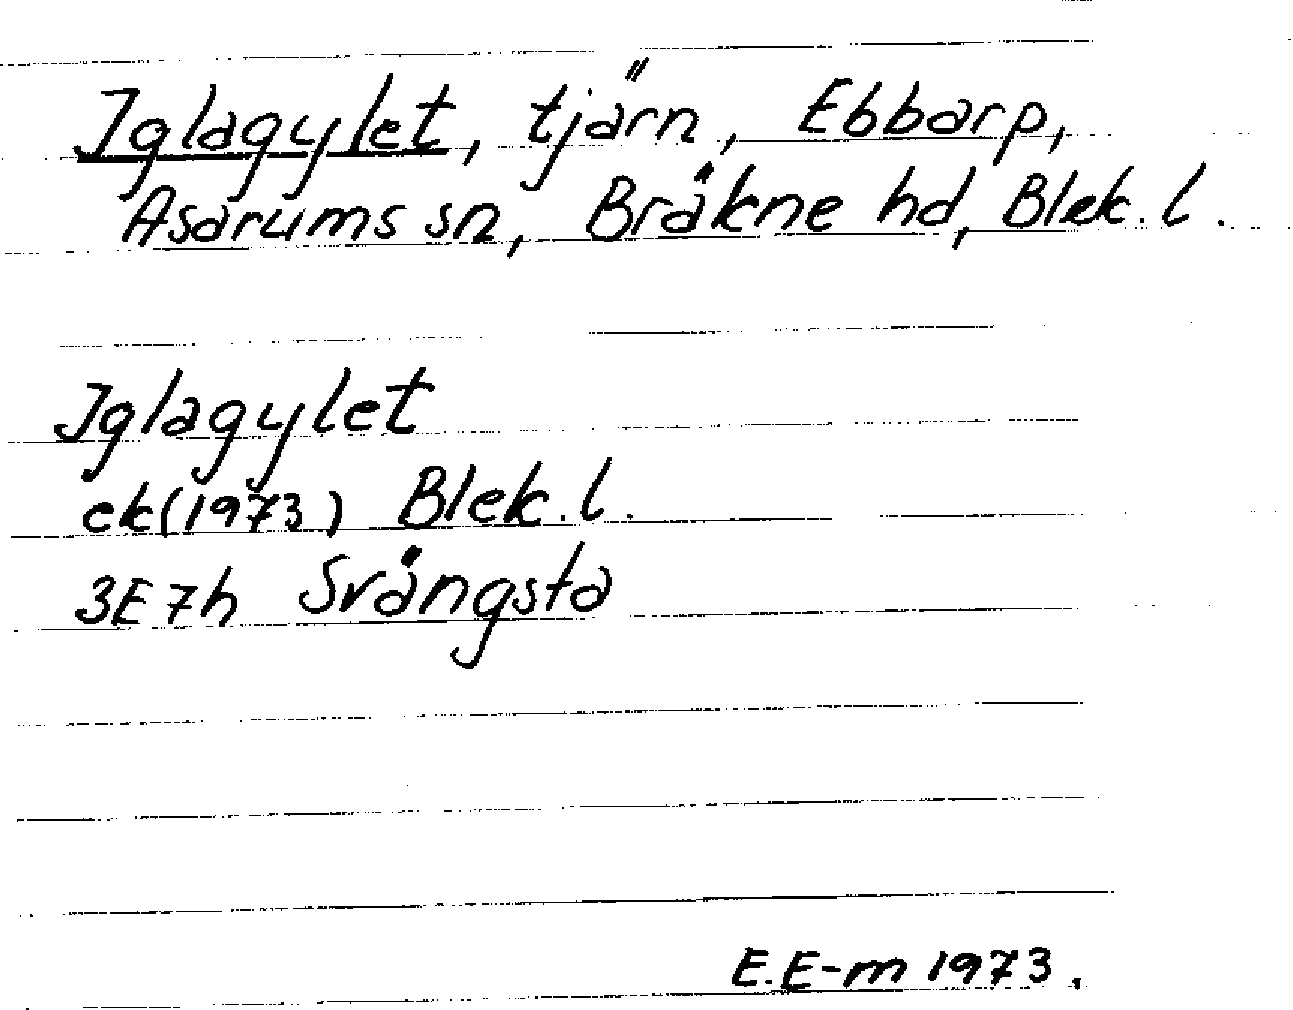 Iglagylet, tjärn, Ebbarp,
Asarums sn, Bräkne hd, Blek. l.
Iglagylet
ek(1973) Blek. l.
3E7h Svängsta
E.E-m 1973.